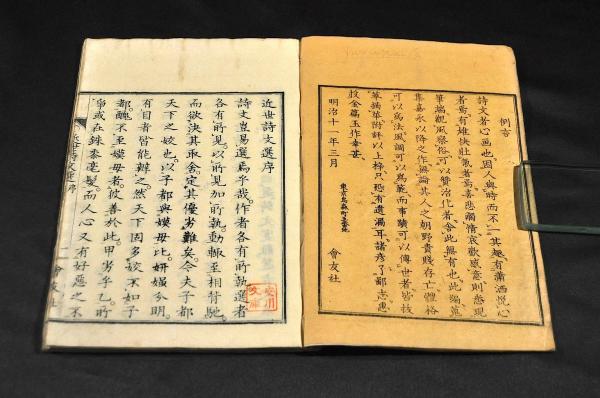 例言
詩文者心画也因人與時而不一其趣有瀟洒悦心
者焉有雄快壮氣者焉喜悲調情哀歓感意則悉現
筆端觀風察俗可以賛治化者舍此無有也此編蒐
集嘉永以降之作無論其人之朝野貴賤存亡體格
可以為法風調可以為範而事蹟可以傳世者皆抜
萃摘華附評以上梓只恐有遺漏耳諸彦了鄙志惠
投金篇玉作幸甚
明治十一年三月
會友社
近世詩文選序
詩文豈易選焉乎哉作者各有所執選者
各有所見以所見加所執動輙至相背馳
而欲決其取舍定其優劣難矣今夫子都
天下之姣也以子都與嫫母比妍媸分明
有目者皆能辨之然天下固多姣不如子
都醜不至嫫母者彼善於此甲劣乎乙所
爭或在銖黍毫髮而人心又有好惡之不
會友社